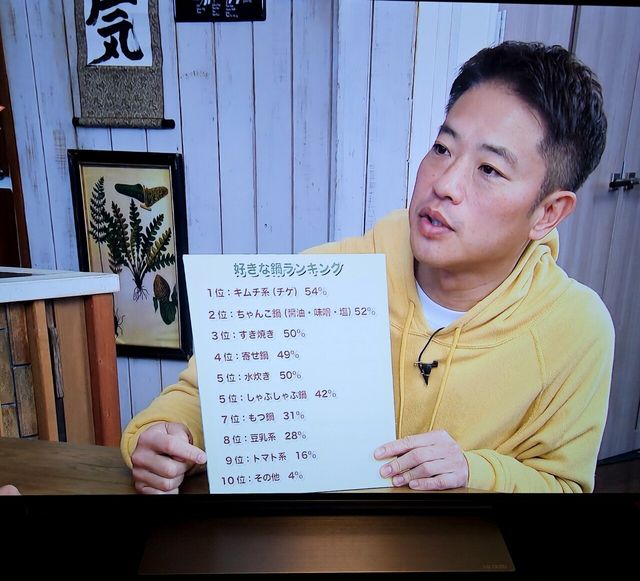 気
好きな鍋ランキング
1位：キムチ系(チゲ) 54%
2位：ちゃんこ鍋(醤油・味噌・塩)52%
3位：すき焼き 50%
4位：寄せ鍋 49%
5位：水炊き 50%
5位：しゃぶしゃぶ鍋 42%
7位：もつ鍋 31%
8位：豆乳系 28%
9位：トマト系 16%
10位：その他 4%